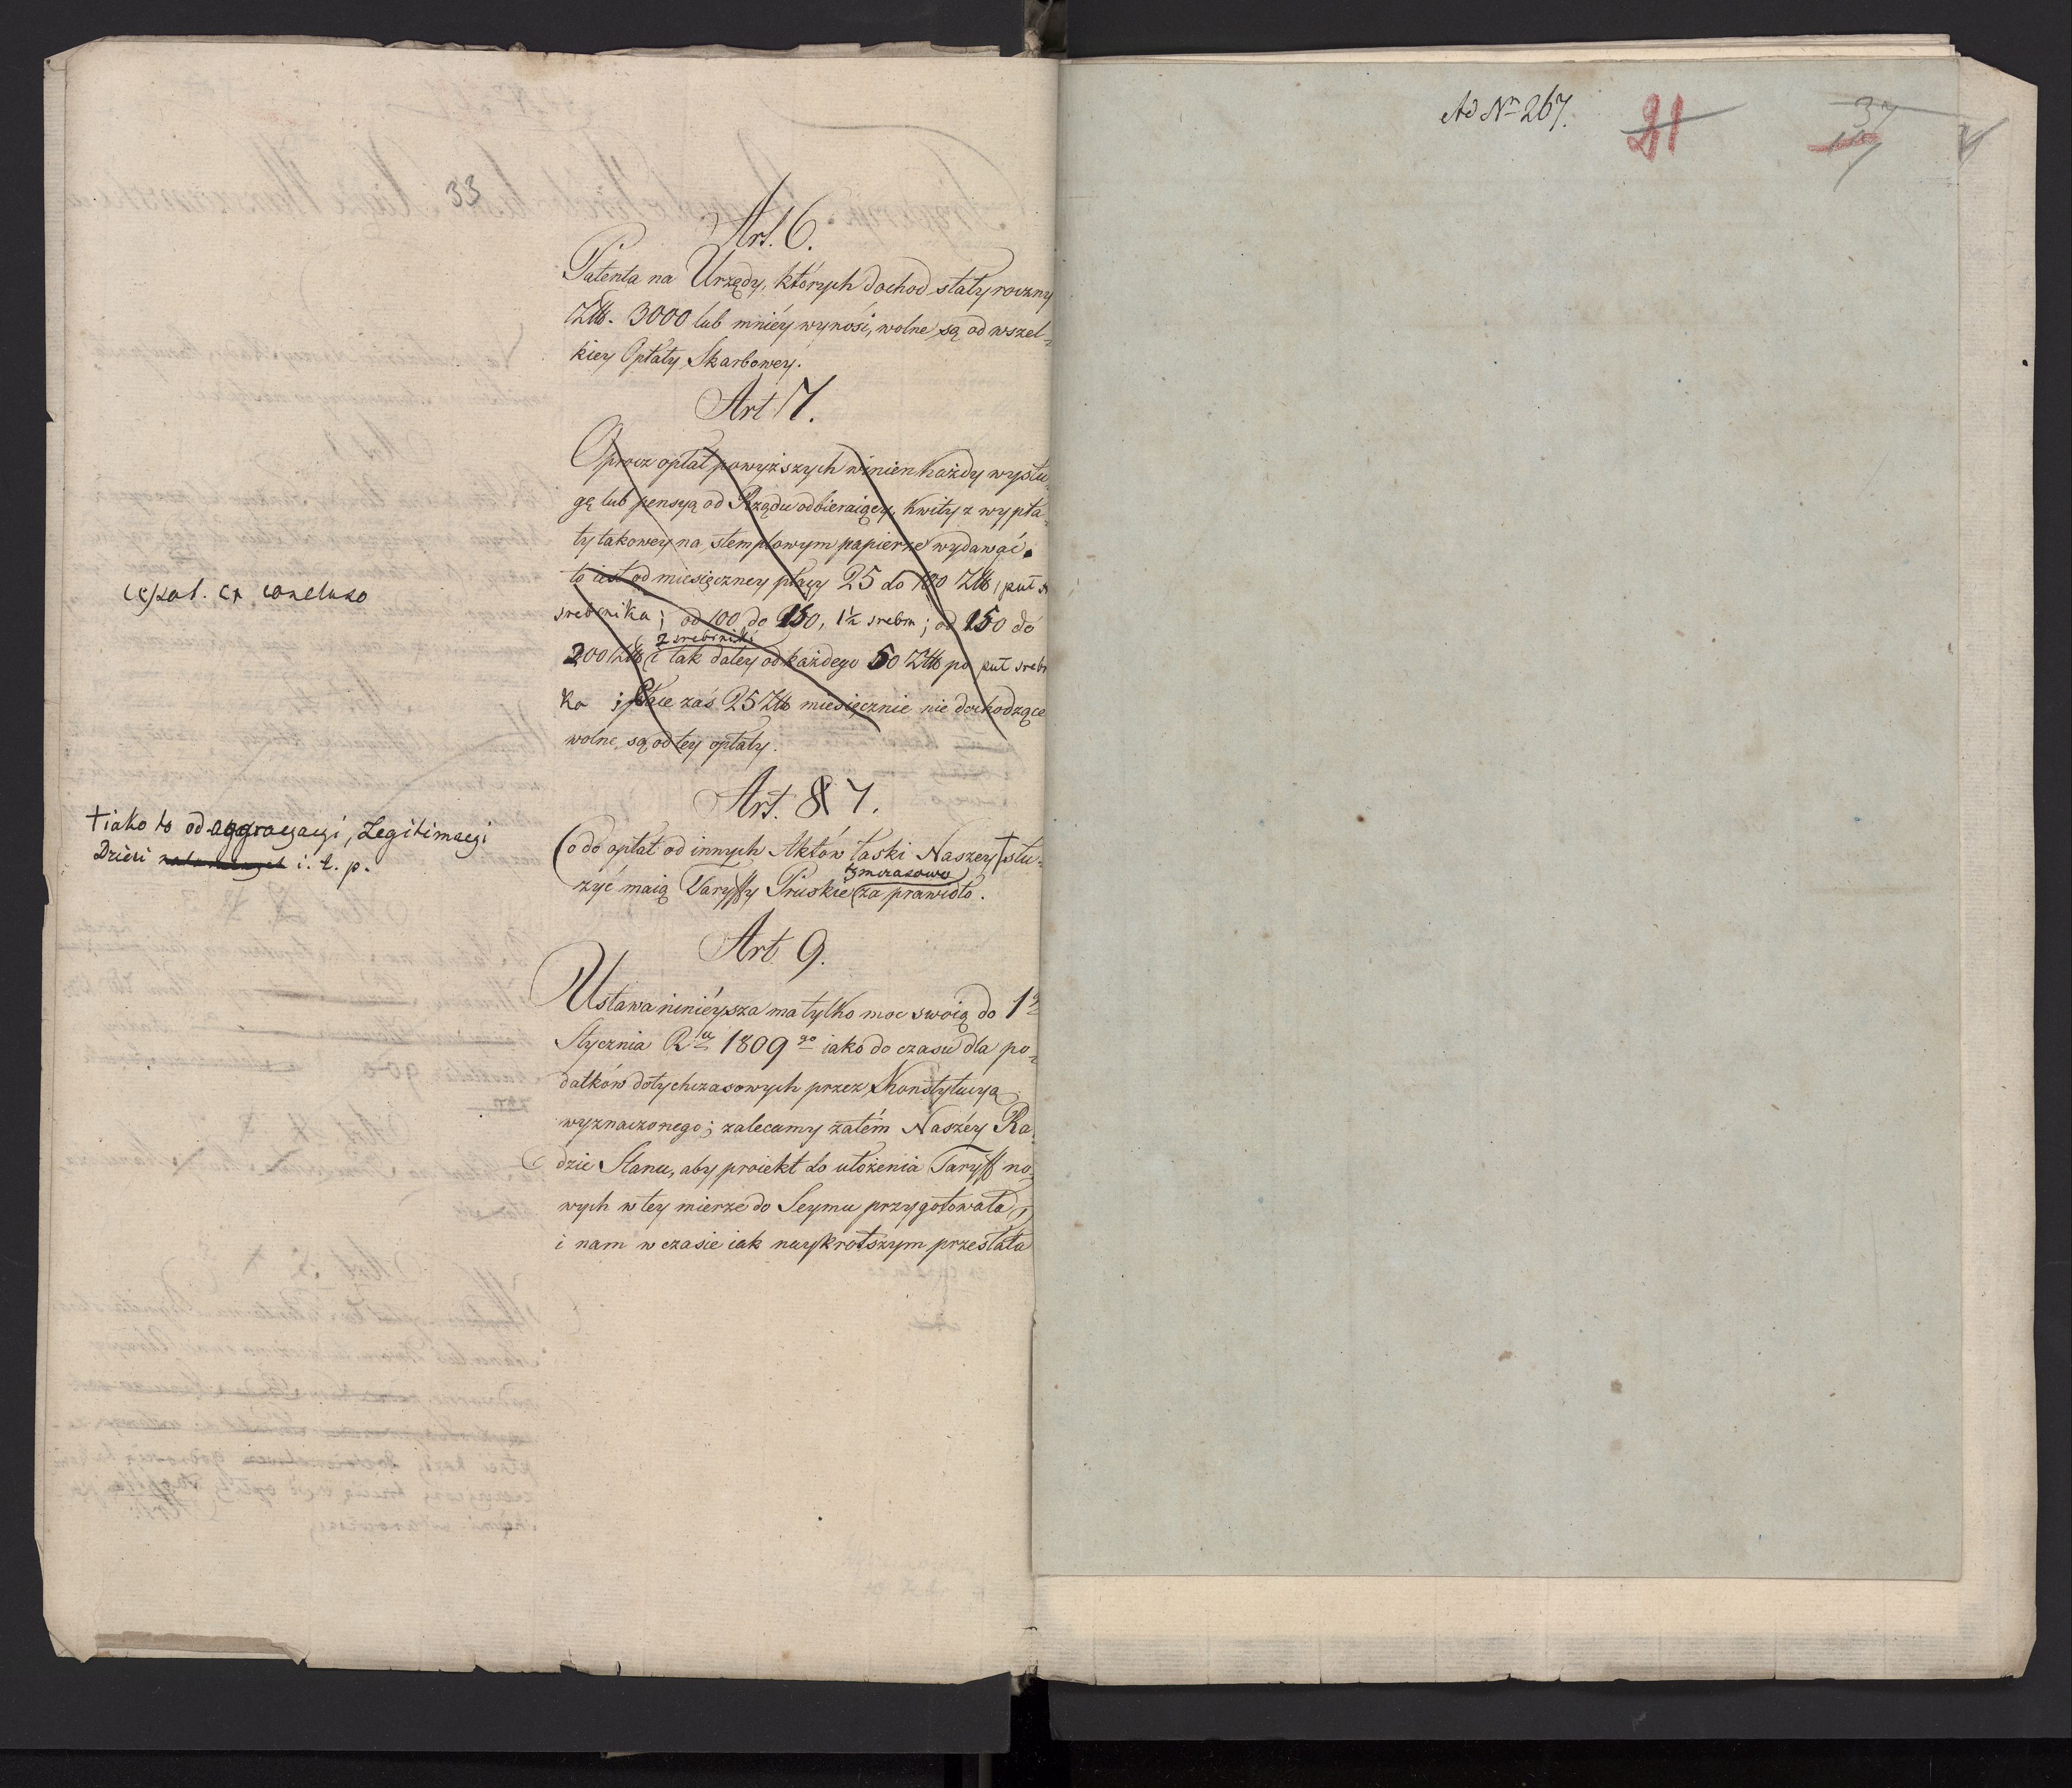 33
Art. 6.
Patenta na Urzędy, których dochod stały roczny
Złł. 3000 lub mniéy wynosi, wolne są od wszel-
kiey Opłaty Skarbowey.
Art 7.
Oprocz opłat powyższych winien każdy wysłu-
gę lub pensyą od Rządu odbieraiący, kwity z wypła-
ty takowey na stemplowym papierze wydawać.
to iest od miesięczney płacy 25 do 100 Złł, puł
srebrnika; od 100 do 150, 1½ srebrn; od 150 do
2 srebrniki
200 Złł i tak daley od każdego 50 Złł po puł srebr
ka ; płace zaś 25 Złł miesięcznie nie dochodzące
wolne są od tey opłaty.
expol. ex concluso
Art. 8 7.
Co do opłat od innych Aktów łaski Naszey + słu-
tymczasowo
żyć maią Taryffy Pruskie za prawidło.
+ iako to od aggregacyi, Legitimacyi
Dzieci i. t. p.
Art. 9.
Ustawa ninieysza ma tylko moc swoią do 1º
Stycznia Rku 1809 go iako do czasu dla po-
datków dotychczasowych przez Konstytucyą
wyznaczonego; zalecamy zatém Naszéy Ra
dzie Stanu, aby proiekt do ułożenia Taryff no-
wych w tey mierze do Seymu przygotowała,
i nam w czasie iak naykrotszym przesłała
Ad Nm 267.
21
37